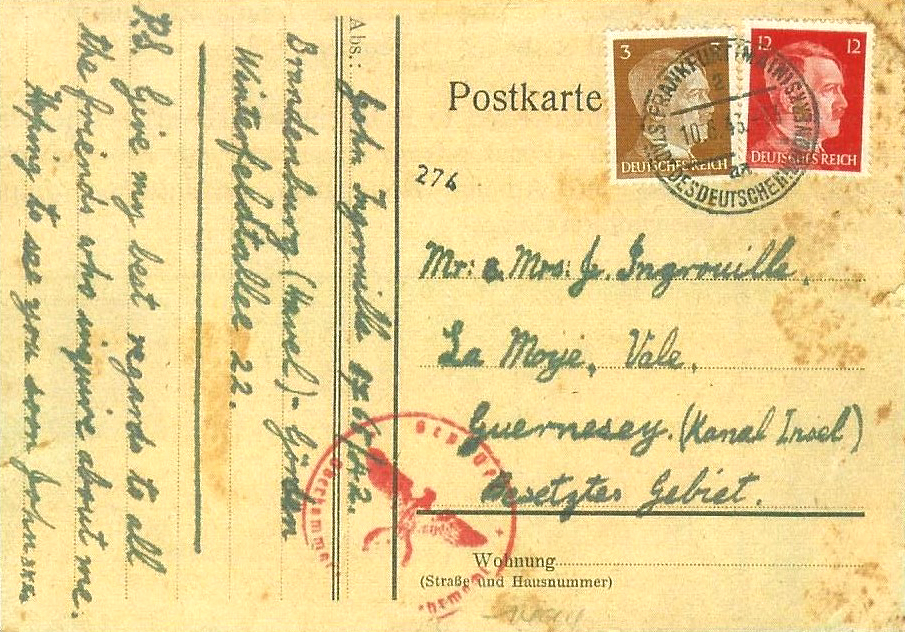 3
DEUTSCHES REICH
12 12
DEUTSCHES REICH
FRANKFURT (MAIN)
2
10
DES DEUTSCHEN
Postkarte
276
Mr: & Mrs: J. Ingrouille,
La Moye, Vale,
Guernesey. (Kanal Insel)
Besetztes Gebiet.
Wohnung
(Straße und Hausnummer)
Abs.: John Ingrouille
Brandenburg (Havel)- Görden
Winterfeldtallee 22.
P.S. Give my best regards to all
the friends who inquire about me.
Hoping to see you soon John
Geprüft
Oberkommando